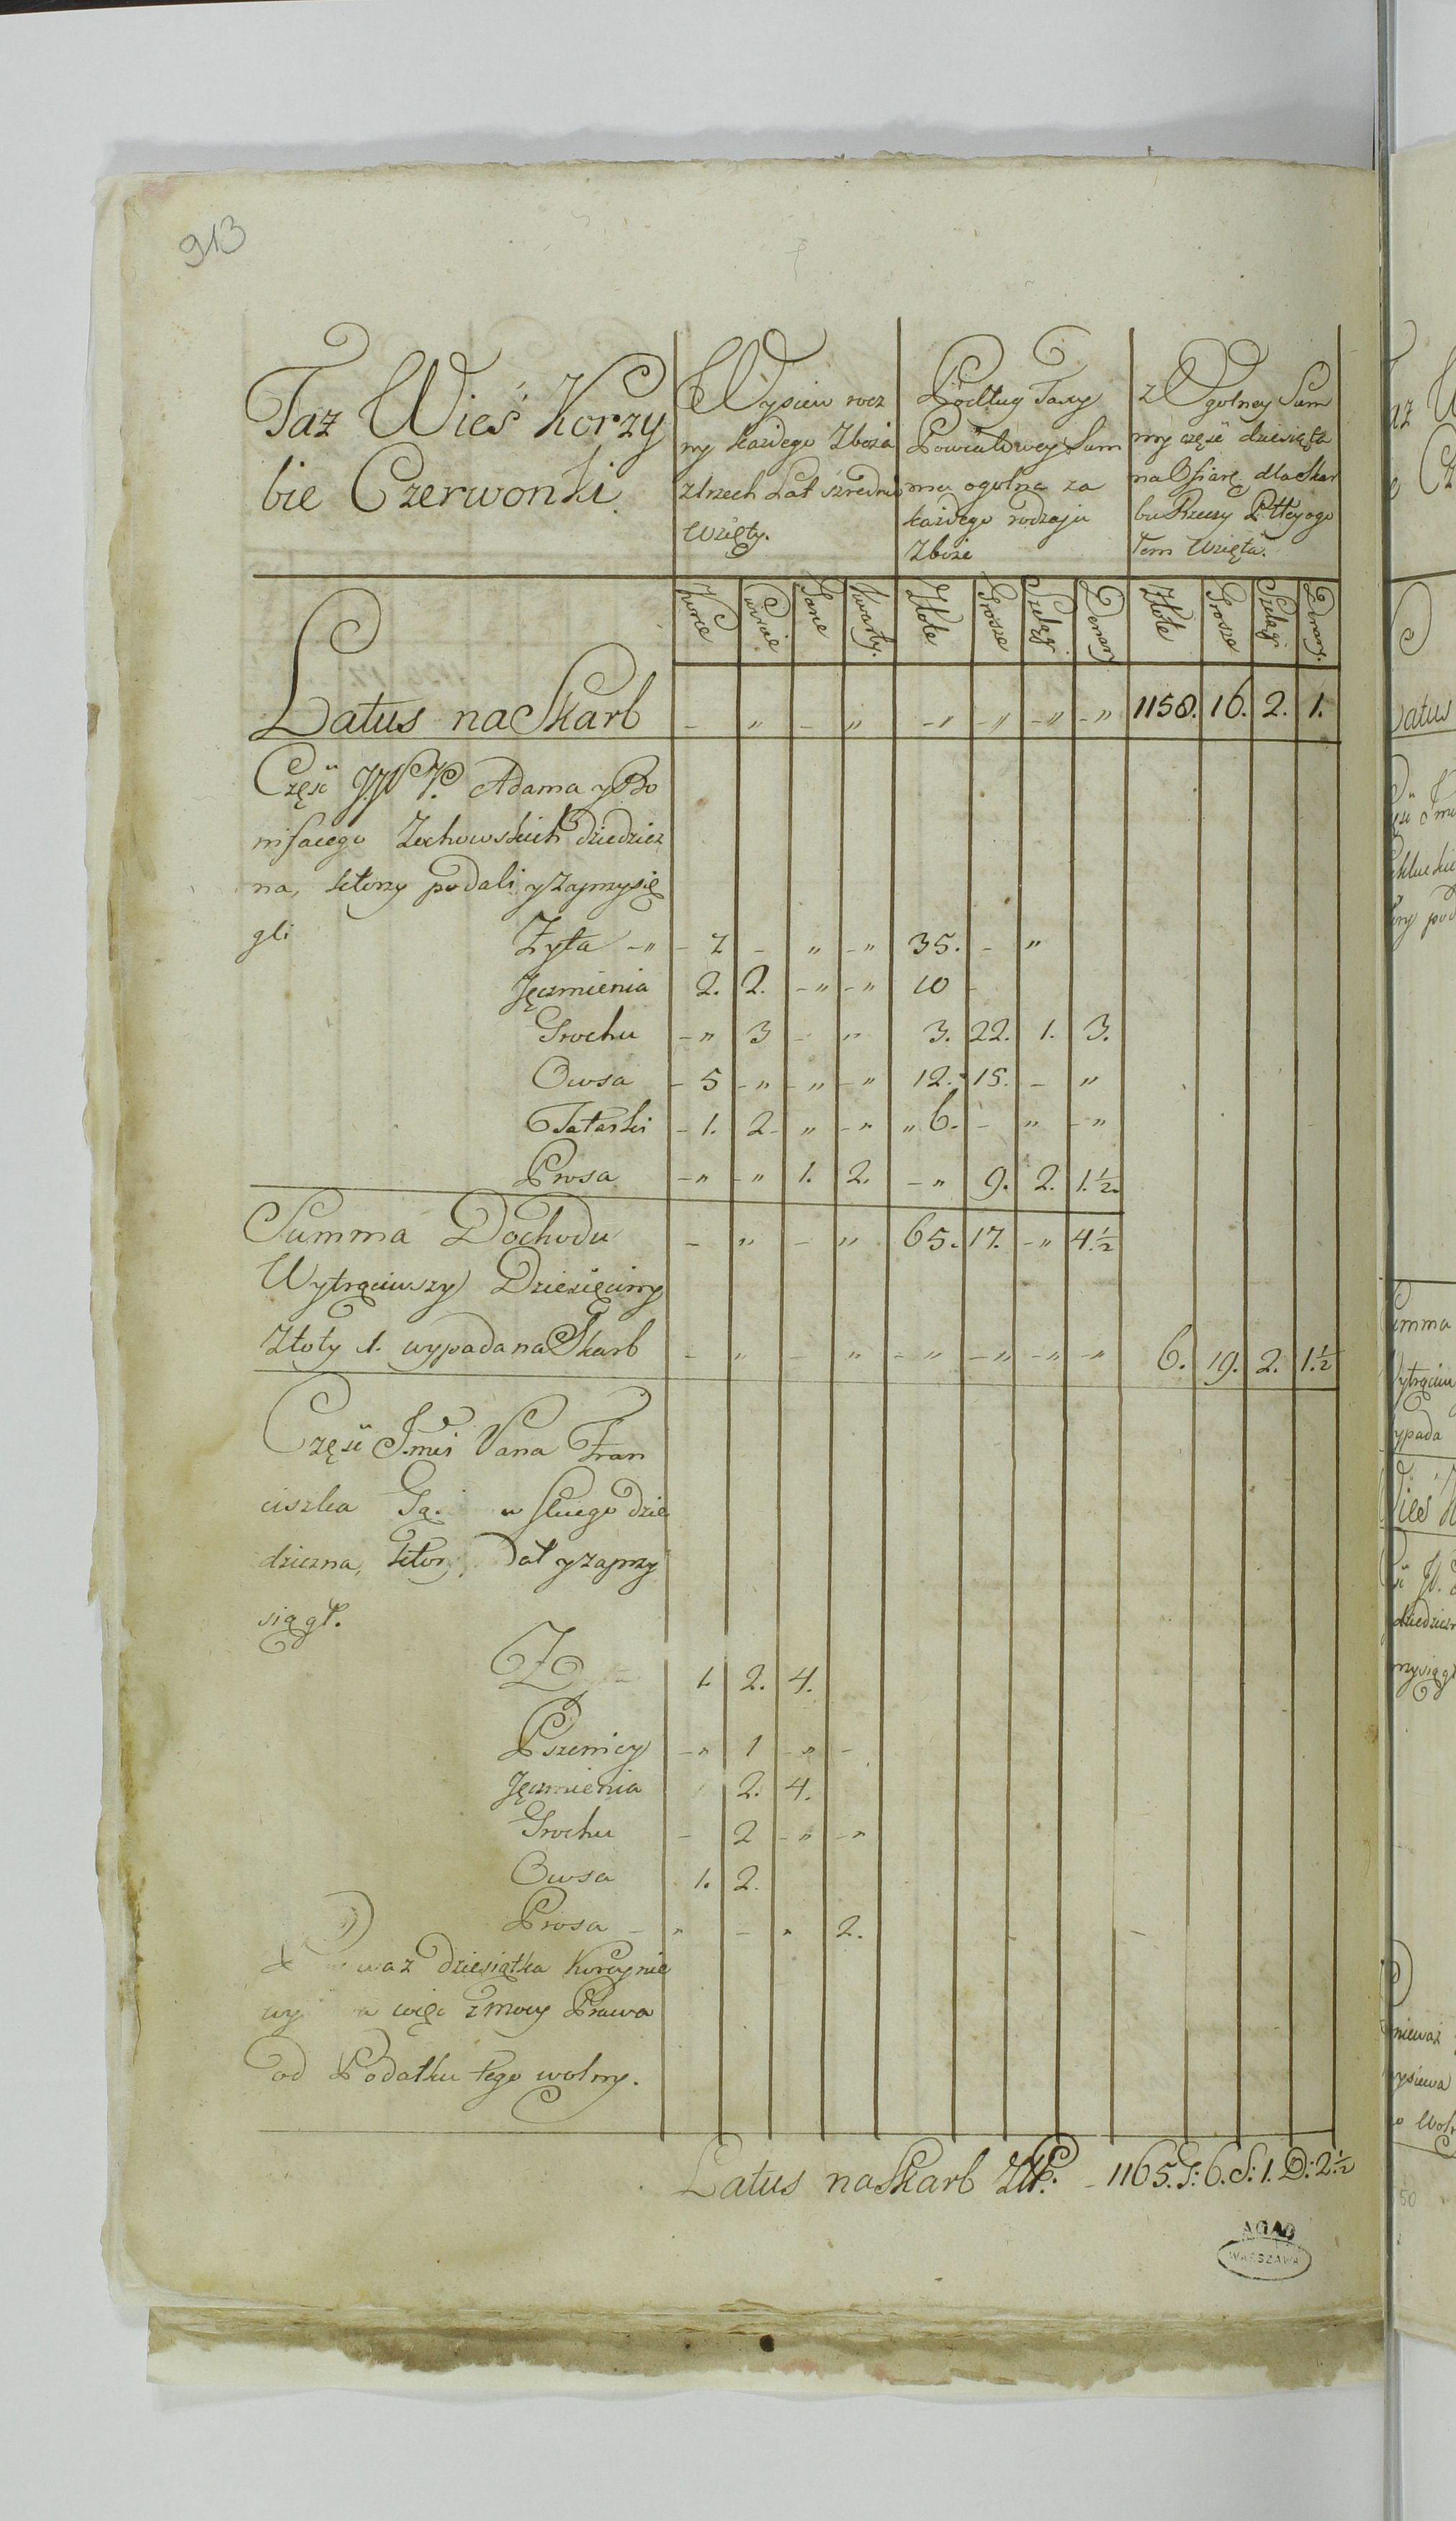 913
Taz Wieś Korzy
bie Czerwonki
Wysiew rocz
ny każdego Zboża
z trzech Lat średni
wzięty.
Podług Taxy
Powiatowey Sum
ma ogolna za
każdego rodzaju
Zboże
z Ogolney Sum
my część dziesiąta
na Ofiarę dla Skar
bu Rzeczy Pltey ogo
łem wzięta.
Korce Cwierci Garce Kwarty. Złote Grosze Szelągi Denary Złote Grosze Szelągi Denary.
Latus na Skarb - " - " -" -" -" -" 1158. 16. 2. 1.
Część JJWW. Adama y Bo
nifacego Zochowskich dziedzicz
na, ktorzy podali y zaprzysię
gli
Zyta -" - 7 - " -" 35. - "
Jęczmienia 2. 2. -" -" 10 -
Grochu -" 3 - " 3. 22. 1. 3.
Owsa - 5 -" -" -" 12. 15. - "
Tatarki - 1. 2- " -" " 6. - " -"
Prosa -" -" 1. 2. -" 9. 2. 1.½
Summa Dochodu - " - " 65. 17. -" 4.½
Wytrąciwszy Dziesięciny
Złoty 1. wypada na Skarb - " - " -" -" -" -" 6. 19. 2. 1.½
Część Jmci Pana Fran
ciszka dzie
dziczna, dał y zaprzy
siągł.
1. 2. 4.
Pszenicy -" 1 -" -
Jęczmienia 2. 4.
Grochu - 2 -" -"
Owsa 1. 2.
Prosa - " - " 2.
dziesiątka Korcy nie
więc z mocy Prawa
od Podatku tego wolny.
Latus na Skarb Złt. - 1165. G: 6. S: 1. D: 2.½
AGAD
WARSZAWA